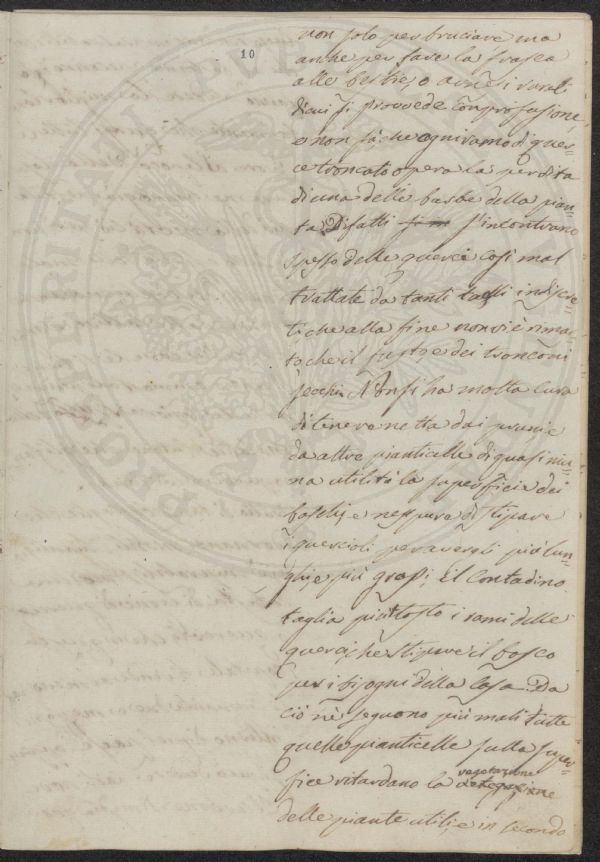 10
non solo per bruciare ma
anche per fare la frasca
alle bestie, o arnesi rurali
di cui si provvede con profusione,
e non sà, che ogni ramo di quer=
ce troncato opera la perdita
di una delle barbe della pian=
ta. Difatti s'incontrano
spesso delle querci così mal
trattate da tanti tagli indiscre=
ti che alla fine non vi è rimas=
to che il fusto e dei tronconi
secchi. Non si ha molta cura
di tenere netta dai pruni, e
da altre pianticelle di quasi niu=
na utilità la superficie dei
boschi, e neppure di stipare
i quercioli per avergli più lun=
ghi, e più grossi; E il Contadino
taglia piuttosto i rami delle
querci, che stipare il bosco
per i bisogni della Casa. Da
ciò nè seguono più mali tutte
quelle pianticelle sulla super=
fice ritardano la vegetazione
delle piante utili, e in secondo